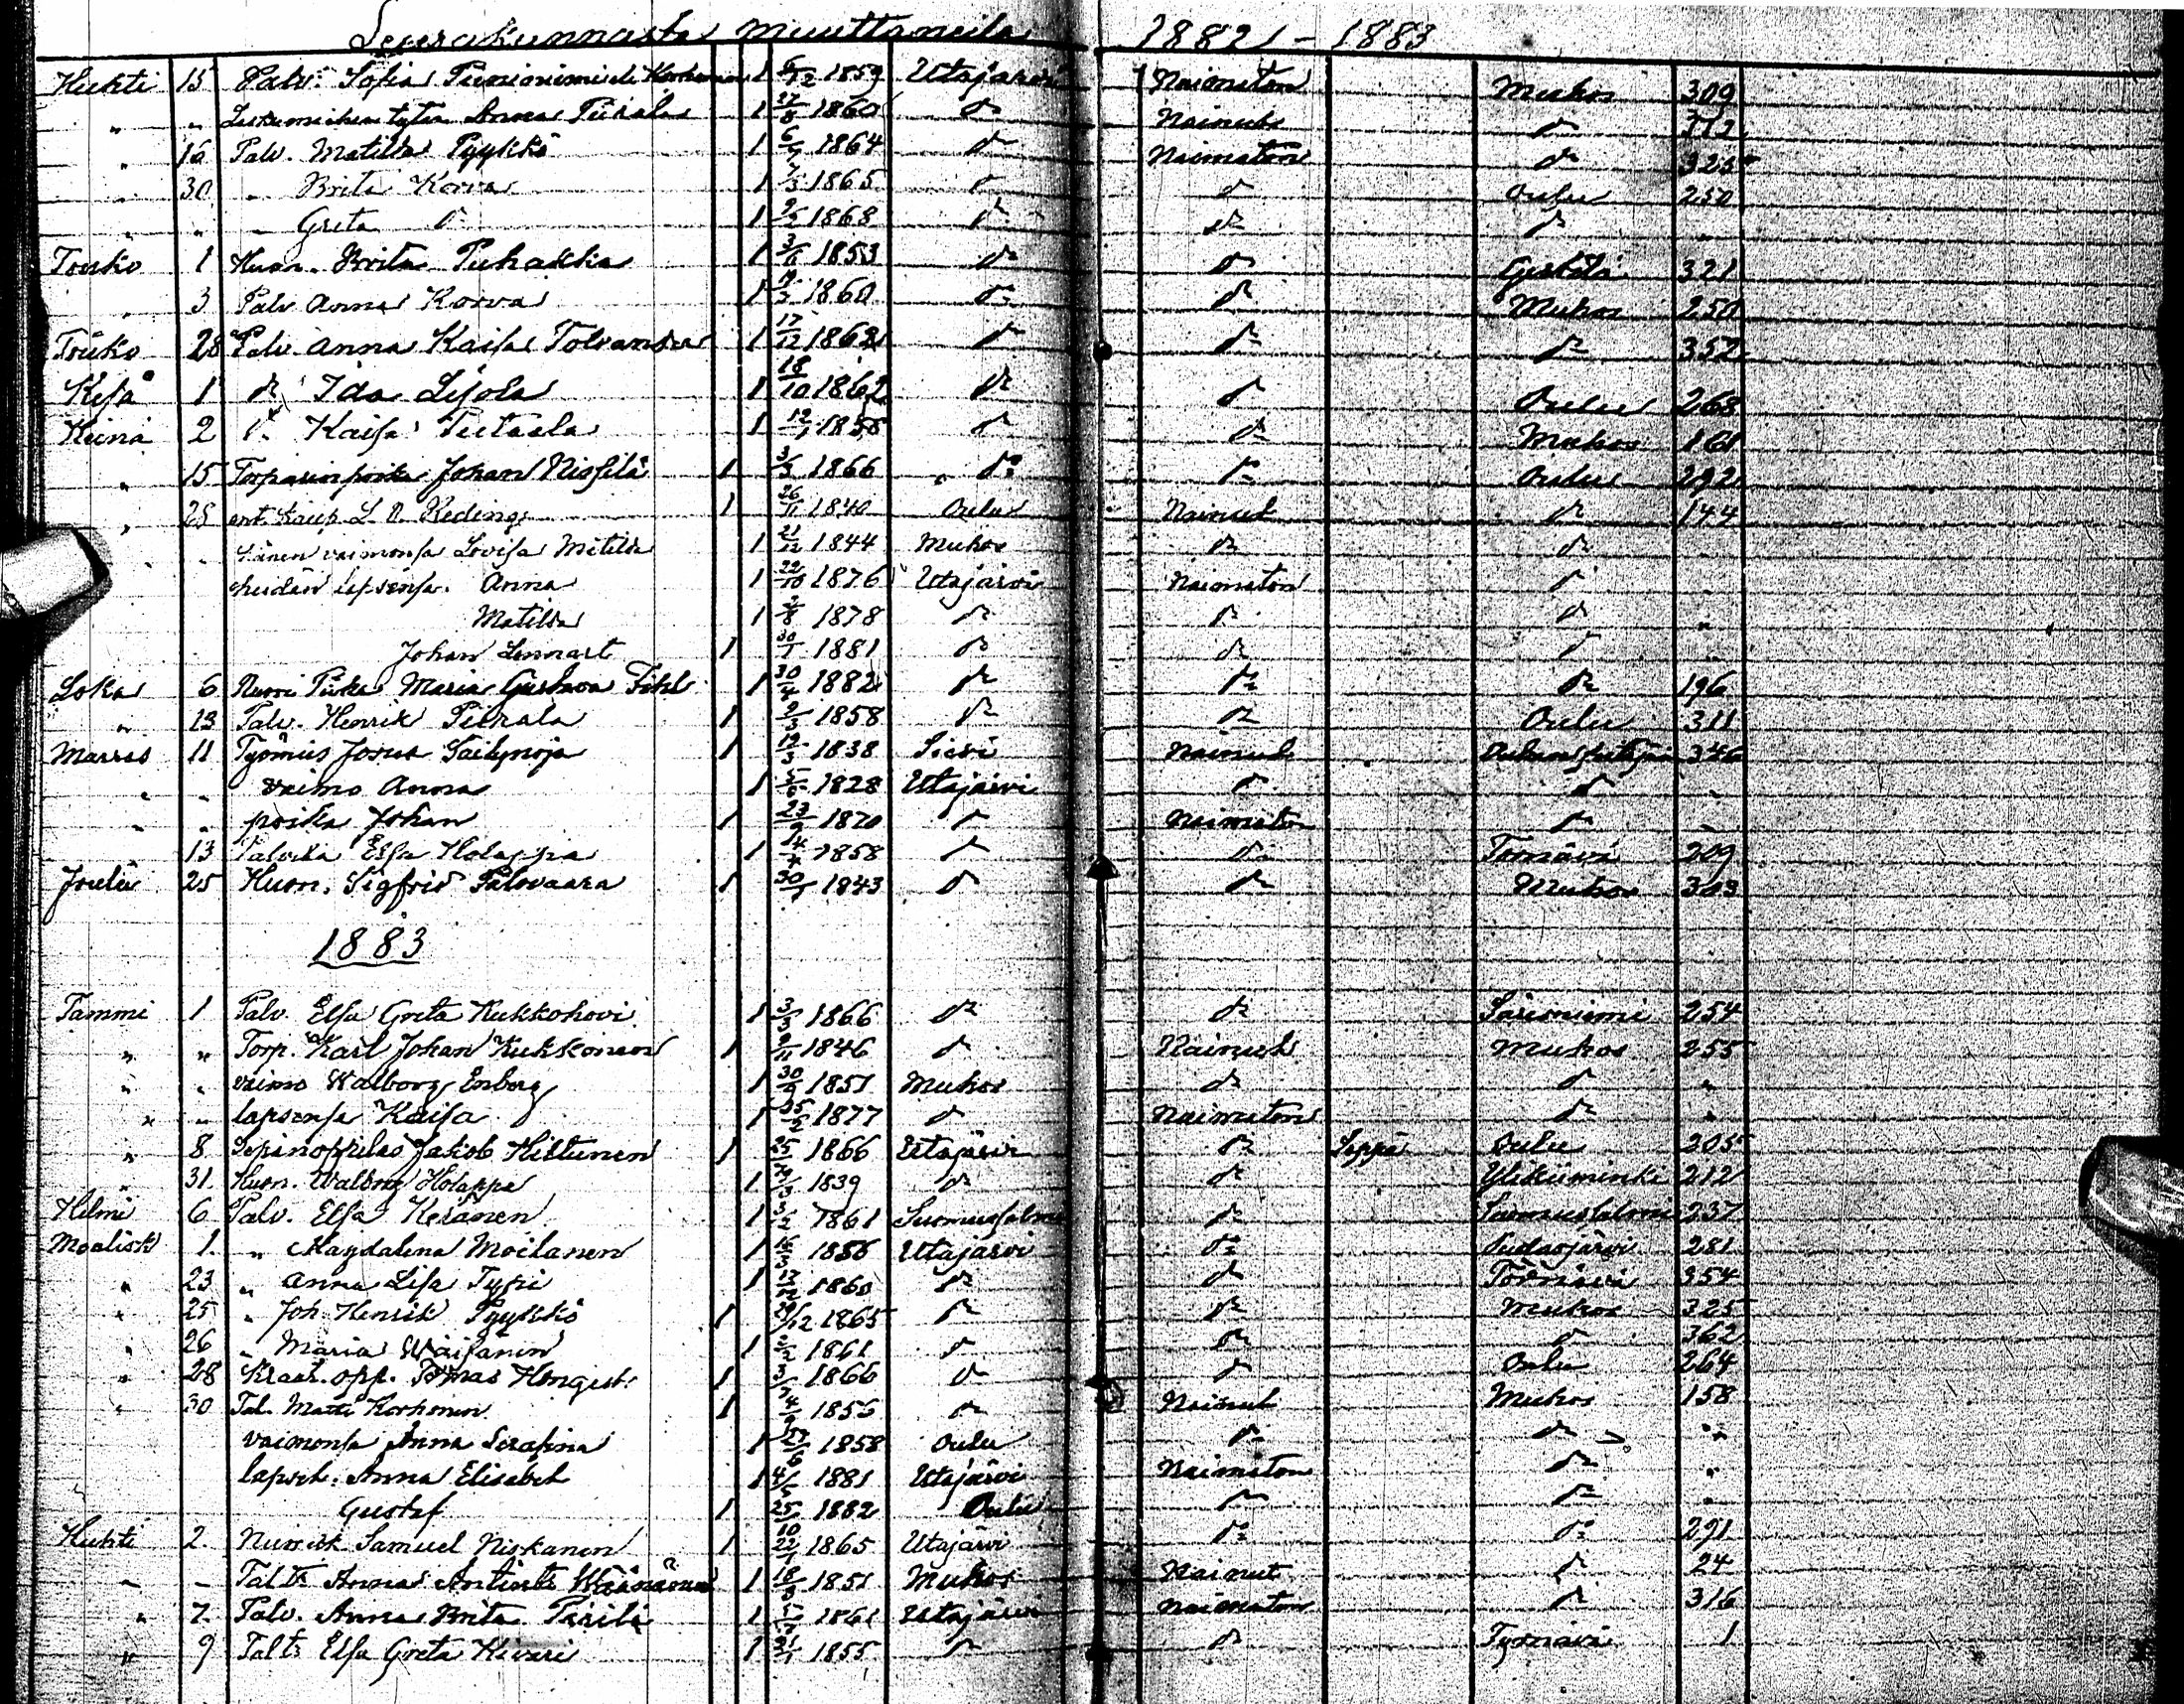 Seurakunnasta Muuttaneita 1882 - 1883
Huhti 15 Palv. Sofia 1 1859 Utajärvi Naimaton Muhos 309
" " Leskimiehen tytär Anna Piirala 1 1860 d:o Nainut d:o
" 16 Palv. Matilda Pyykkö 1 1864 d:o Naimaton d:o 325
" 30 " Brita Korva 1 1865 d:o d:o Oulu 250
" " " Greta d:o 1 1868 d:o d:o d:o "
Touko 1 Huon. Brita Puhakka 1 3/6 1853 d:o d:o 321
" 3 Palv Anna Korva 1 1860 d:o d:o Muhos 250
Touko 28 Palv. Anna Kaisa Tolvanen 1 17/12 1862 d:o d:o d:o 352
Kesä 1 d:o Ida Lijola 1 18/10 1862 d:o d:o Oulu 268
Heinä 2 d:o Kaisa 1 d:o d:o Muhos 161
" 15 Torparinpoika Johan Nissilä 1 3/3 1866 d:o d:o Oulu 292
" 25 ent. Kaup. L. A. Reding 1 26/11 1840 Oulu Nainut d:o 144
" hänen vaimonsa Lovisa Matilda 1 1844 Muhos d:o d:o "
" heidän lapsensa. Anna 1 22/10 1876 Utajärvi Naimaton d:o
Matilda 1 1878 d:o d:o d:o "
Johan Lennart 1 30/1 1881 d:o d:o d:o "
Loka 6 Nuori Piika Maria Gustava Fihl 1 30/4 1882 d:o d:o d:o 196
" 13 Palv. Henrik Piirala 1 1858 d:o d:o Oulu 311
Marras 11 Työmies Josua Säilynoja 1 1838 Sievi Nainut Oulunpitäjä 346
" " vaimo Anna 1 1828 Utajärvi d:o d:o "
" " poika Johan 1 23/9 1870 d:o Naimaton d:o "
13 Palvelia Elsa Holappa 1 1858 d:o d:o 209
Joulu 25 Huon. Sigfrid Palovaara 1 1843 d:o d:o Muhos 303
1883
Tammi 1 Palv. Elsa Greta Kukkohovi 1 3/3 1866 d:o d:o Säräisniemi 254
" " Torp. Karl Johan Kukkonen 1 1846 d:o Nainut Muhos 255
" " vaimo Walborg Enberg 1 30/9 1851 Muhos d:o d:o "
" " lapsensa Kaisa 1 1877 d:o Naimaton d:o "
" 8 Sepänoppilas Jakob Hiltunen 1 1866 Utajärvi d:o Seppä Oulu 205
" 31. Huon. Walborg Holappa 1 1839 d:o d:o Ylikiiminki 212
Helmi 6 Palv. Elsa Keränen 1 3/2 1861 Suomussalmi d:o Suomussalmi 237
Maalisk 1. " Magdalena Moilanen 1 1856 Utajärvi d:o Pudasjärvi 281
" 23 " Anna Lisa Typpi 1 1860 d:o d:o 354
" 25 " Joh Henrik Pyykkö 1 29/12 1865 d:o d:o Muhos 325
" 26 " Maria Wäisänen 1 1861 d:o d:o d:o 362
" 28 Kraat. opp. Tomas Hengist 1 1866 d:o d:o Oulu 264
" 30 Tal. Matti Korhonen 1 d:o Nainut Muhos 158
vaimonsa Anna Serafina 1 1858 Oulu d:o d:o "
lapset. Anna Elisabet 1 1881 Utajärvi Naimaton d:o "
Gustaf 1 1882 Oulu d:o d:o "
Huhti 2. Samuel Niskanen 1 1865 Utajärvi d:o d:o 291
" " Tal. tr. Anna 1 1851 Muhos Nainut d:o 24
" 7. Palv. Anna Brita Pärilä 1 1861 Utajärvi Naimaton d:o 316
" 9 Tal. tr. Elsa Greta Kivari 1 1855 d:o d:o Tyrnävä 1